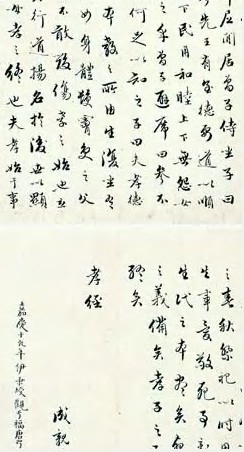 閒居曾子侍坐子曰
先王有至德要道以順
下民用和睦上下無怨女
之乎曾子避席曰參不
何足以知之子曰夫孝德
本教之所由生復坐吾
女身體髮膚受之父
不敢毀傷孝之始也立
行道揚名於後世以顯
母孝之終也夫孝始于事
之春秋祭祀以時思
生事愛敬死事
生代之本盡矣死
之義備矣孝子之
終矣
孝經
成親
嘉慶十九年伊秉綬觀